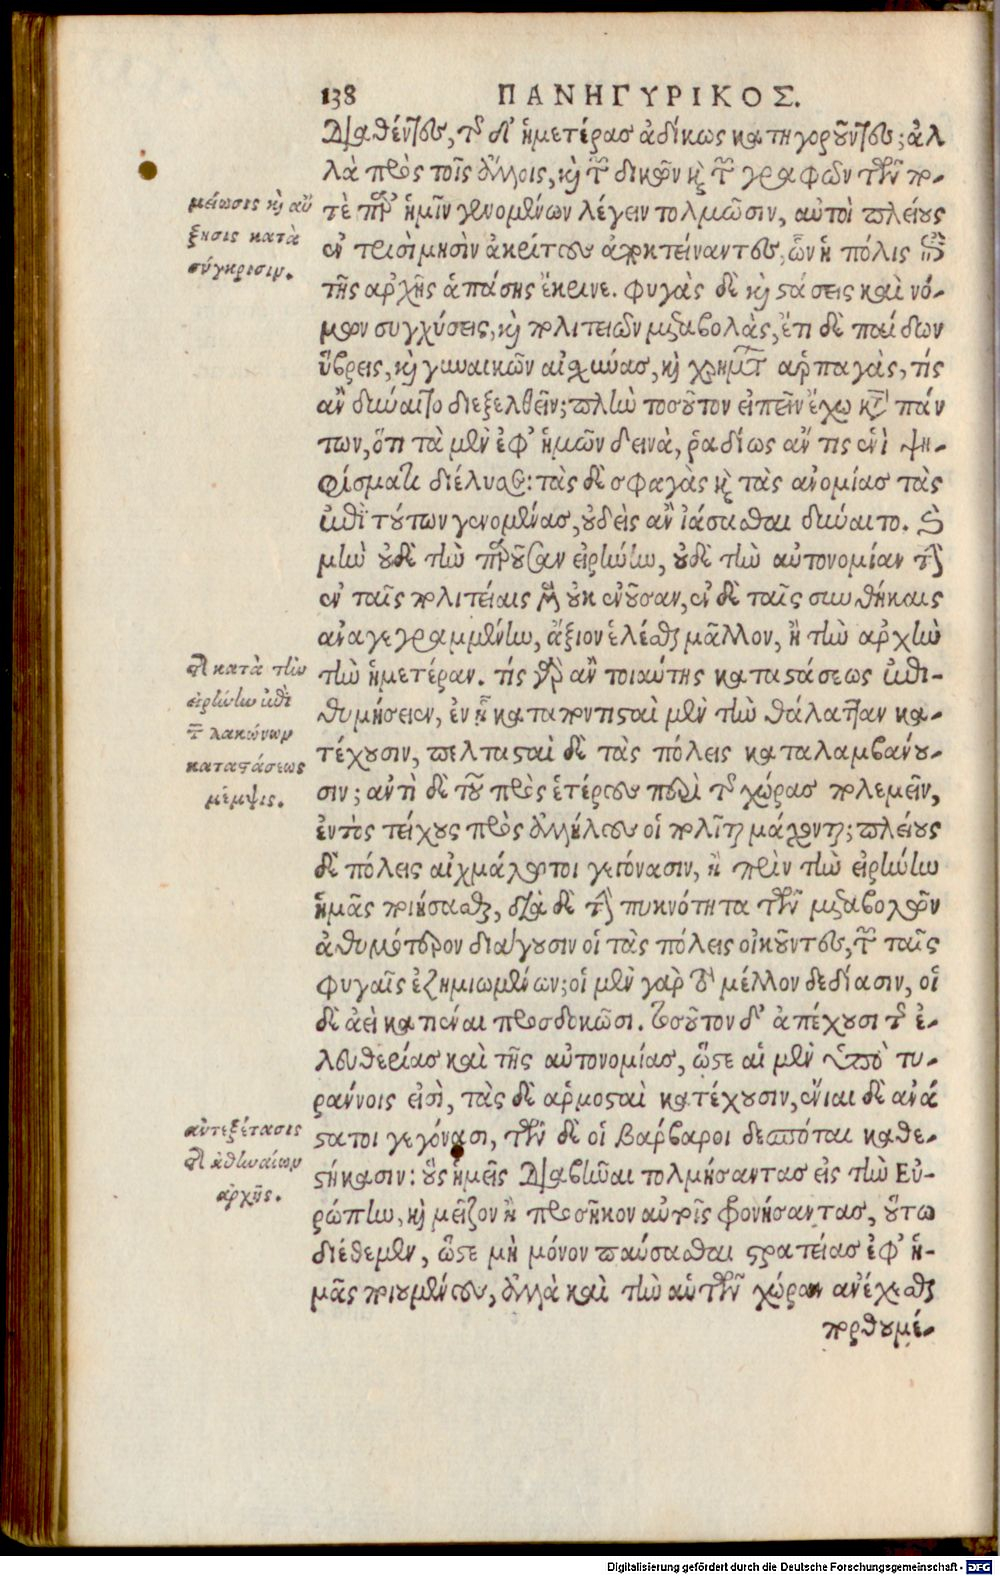 138 ΠΑΝΗΓΥΡΙΚΟΣ.
διαθέντες, τῆς δ' ἡμετέρας ἀδίκως κατηγοροῦντες; ἀλ
λὰ πρὸς τοῖς ἄλλοις, καὶ τῶν δικῶν καὶ τῶν γραφῶν τῶν πο-
τὲ παρ' ἡμῖν γενομένων λέγειν τολμῶσιν, αὐτοὶ πλείους
ἐν τρισὶ μησὶν ἀκρίτους ἀποκτείναντες, ὧν ἡ πόλις ἐπὶ
τῆς ἀρχῆς ἁπάσης ἔκρινε. φυγὰς δὲ καὶ στάσεις καὶ νό-
μων συγχύσεις, καὶ πολιτειῶν μεταβολὰς, ἔτι δὲ παίδων
ὕβρεις, καὶ γυναικῶν αἰσχύνας, καὶ χρημάτων ἁρπαγὰς, τίς
ἂν δύναιτο διεξελθεῖν; πλὴν τοσοῦτον εἰπεῖν ἔχω κατὰ πάν
των, ὅτι τὰ μὲν ἐφ' ἡμῶν δεινὰ, ῥαδίως ἄν τις ἑνὶ ψη-
φίσματι διέλυσε: τὰς δὲ σφαγὰς καὶ τὰς ἀνομίας τὰς
ἐπὶ τούτων γενομένας, οὐδεὶς ἂν ἰάσασθαι δύναιτο. καὶ
μὴν οὐδὲ τὴν παροῦσαν εἰρήνην, οὐδὲ τὴν αὐτονομίαν τὴν
ἐν ταῖς πολιτείαις μὲν οὐκ ἐνοῦσαν, ἐν δὲ ταῖς συνθήκαις
ἀναγεγραμμένην, ἄξιον ἑλέσθαι μᾶλλον, ἢ τὴν ἀρχὴν
τὴν ἡμετέραν. τίς γὰρ ἂν τοιαύτης καταστάσεως ἐπι-
θυμήσειεν, ἐν ᾗ καταποντισταὶ μὲν τὴν θάλατταν κα-
τέχουσιν, πελτασταὶ δὲ τὰς πόλεις καταλαμβάνου-
σιν; ἀντὶ δὲ τοῦ πρὸς ἑτέρους περὶ τῆς χώρας πολεμεῖν,
ἐντὸς τείχους πρὸς ἀλλήλους οἱ πολῖται μάχονται; πλείους
δὲ πόλεις αἰχμάλωτοι γεγόνασιν, ἢ πρὶν τὴν εἰρήνην
ἡμᾶς ποιήσασθαι, διὰ δὲ τὴν πυκνότητα τῶν μεταβολῶν
ἀθυμότερον διάγουσιν οἱ τὰς πόλεις οἰκοῦντες, τῶν ταῖς
φυγαῖς ἐζημιωμένων; οἱ μὲν γὰρ τὸ μέλλον δεδίασιν, οἱ
δὲ ἀεὶ κατιέναι προσδοκῶσι. τοσοῦτον δ' ἀπέχουσι τῆς ἐ-
λευθερίας καὶ τῆς αὐτονομίας, ὥστε αἱ μὲν ὑπὸ τυ-
ράννοις εἰσὶ, τὰς δὲ ἁρμοσταὶ κατέχουσιν, ἔνιαι δὲ ἀνά
στατοι γεγόνασι, τῶν δὲ οἱ βάρβαροι δεσπόται καθε-
στήκασιν: οὓς ἡμεῖς διαβῆναι τολμήσαντας εἰς τὴν Εὐ-
ρώπην, καὶ μεῖζον ἢ προσῆκον αὐτοῖς φρονήσαντας, οὕτω
διέθεμεν, ὥστε μὴ μόνον παύσασθαι στρατείας ἐφ' ἡ-
μᾶς ποιουμένους, ἀλλὰ καὶ τὴν αὑτῶν χώραν ἀνέχεσθαι
πορθουμέ-
μείωσις καὶ αὔ
ξησις κατὰ
σύγκρισιν.
τῆς κατὰ τὴν
εἰρήνην ἐπὶ
τῶν λακώνων
καταστάσεως
μέμψις.
ἀντεξέτασις
τῆς ἀθηναίων
ἀρχῆς.
Digitalisierung gefördert durch die Deutsche Forschungsgemeinschaft - DFG